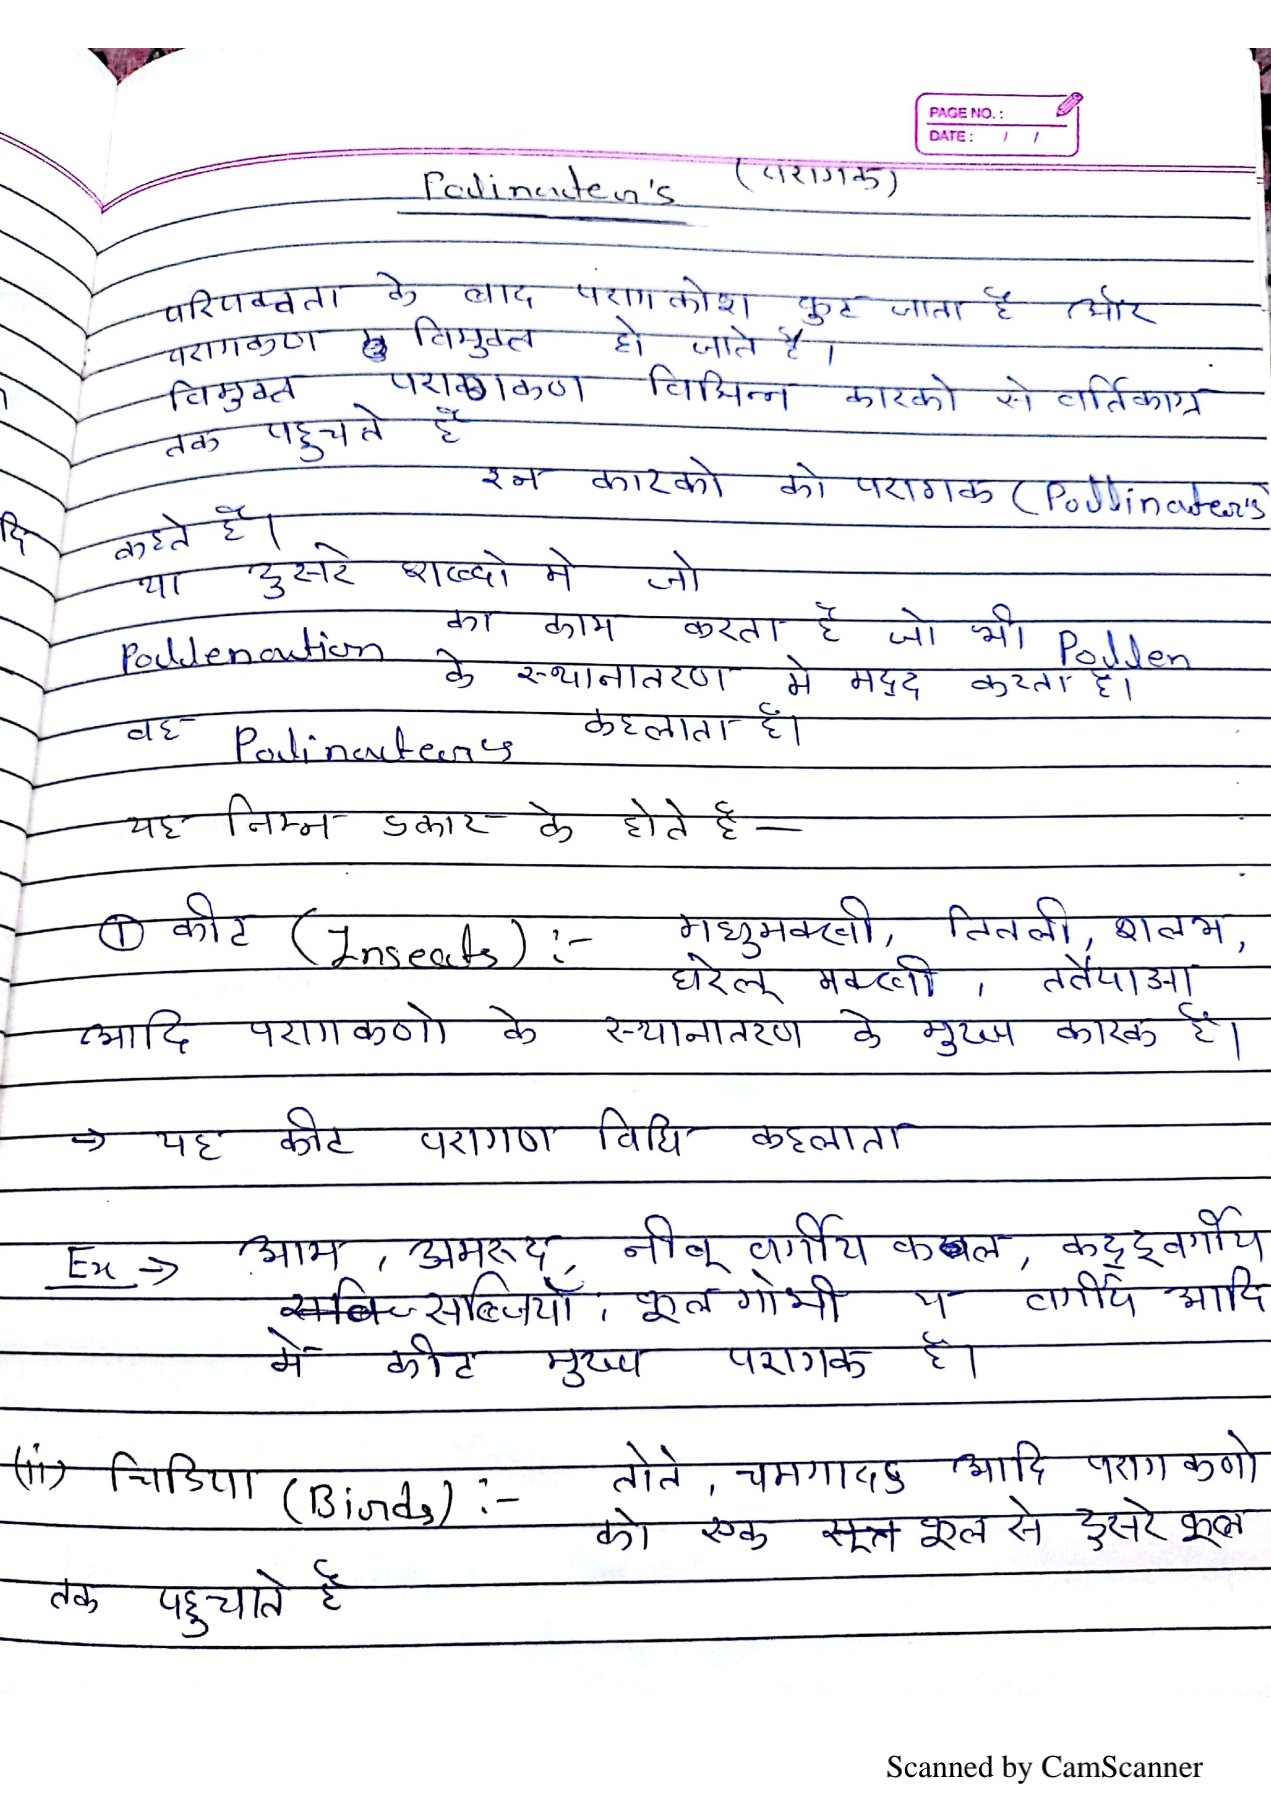 PAGE NO. :
DATE : / /
Pollinater's (परागक)
परिपक्वता के बाद पराग कोश फुट जाता है और
परागकण विमुक्त हो जाते है ।
विमुक्त परागकण विभिन्न कारको से वर्तिकाग्र
तक पहुचते है
इन कारको को परागक (Pollinater's
कहते है ।
या दुसरे शब्दो मे जो
Pollenation का काम करता है जो भी Pollen
के स्थानातरण मे मदद करता है।
वह Pollinaters कहलाता है।
यह निम्न प्रकार के होते है —
① कीट (Insects) :- मधुमक्खी, तितली, शलभ,
घरेलू मक्खी , ततैयाआ
आदि परागकणो के स्थानातरण के मुख्य कारक है ।
→ यह कीट परागण विधि कहलाता
Ex → आम , अमरूद, नीबू वर्गीय फल, कद्दूवर्गीय
सब्जियाँ , फूल गोभी व वर्गीय आदि
में कीट मुख्य परागक है ।
(ii) चिडिया (Birds) :- तोते , चमगादड आदि पराग कणो
को एक फूल से दुसरे फूल
तक पहुचाते है
दि
Scanned by CamScanner